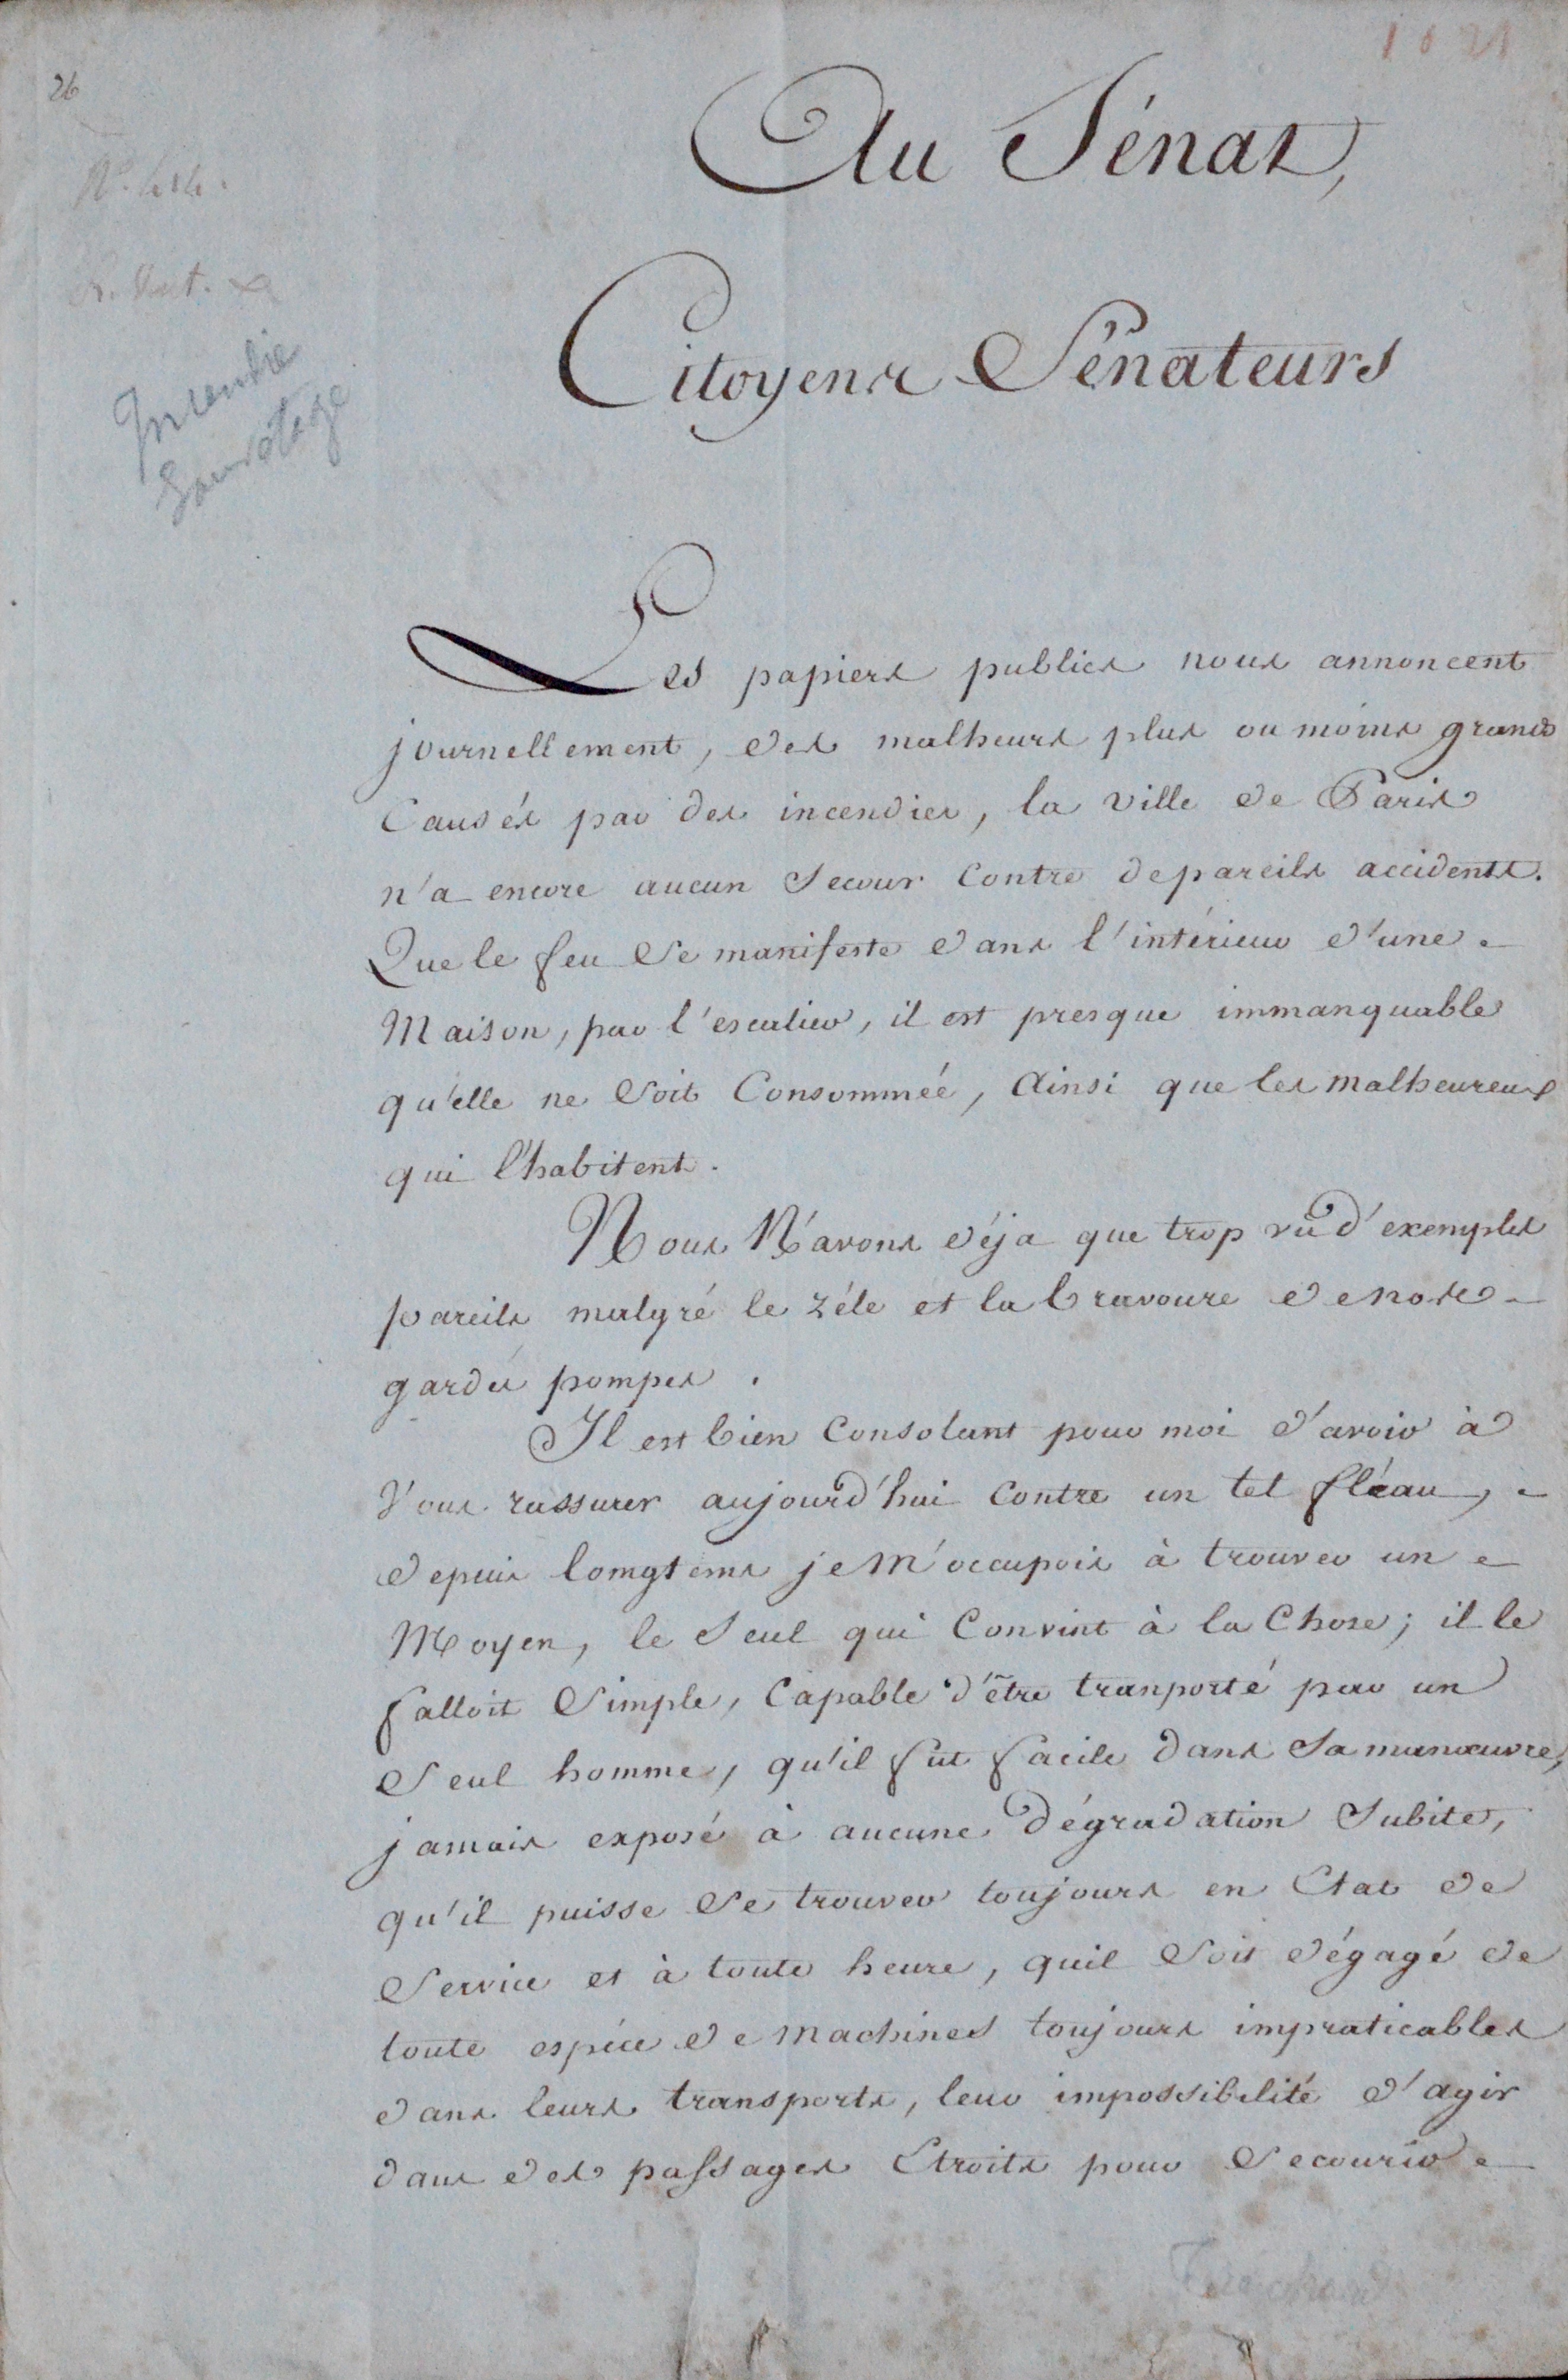 26
Incendie
Sauvetage
Au Sénat,
Citoyens Sénateurs
Les papiers publics nous annoncent
journellement, des malheurs plus ou moins grands
Causés par des incendies, la ville de Paris
n'a encore aucun Secour Contre de pareils accidents.
Que le feu Se manifeste dans l'intérieur d'une
Maison, par l'escalier, il est presque immanquable
qu'elle ne Soit Consommée, Ainsi que les malheureux
qui l'habitent.
Nous N'avons déja que trop vû d'exemples
pareils malgré le zéle et la bravoure de nos
gardes pompes.
Il est bien Consolant pour moi d'avoir à
Vous rassurer aujourd'hui Contre un tel fléau,
depuis lomgtems je M'occupois à trouver un
Moyen, le Seul qui Convint à la Chose; il le
falloit Simple, Capable d'être tranporté par un
Seul homme, qu'il fut facile dans Sa manœuvre,
jamais exposé à aucune dégradation Subite,
qu'il puisse Se trouver toujours en Etat de
Service et à toute heure, quil Soit dégagé de
toute espéce de Machines toujours impraticables
dans leurs transports, leur impossibilité d'agir
dans des passages Etroits pour Secourir